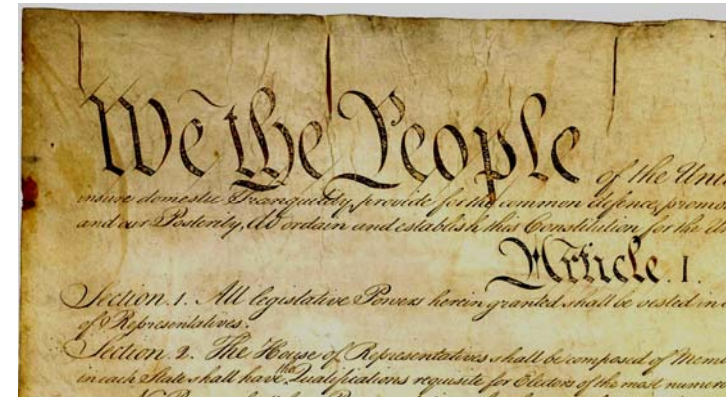 We the People of the Uni
insure domestic Tranquility, provide for the common defence, promo
and our Posterity, do ordain and establish this Constitution for the Un
Article. I.
Section. 1. All legislative Powers herein granted shall be vested in a
of Representatives.
Section. 2. The House of Representatives shall be composed of Mem
in each State shall have the Qualifications requisite for Electors of the most numero